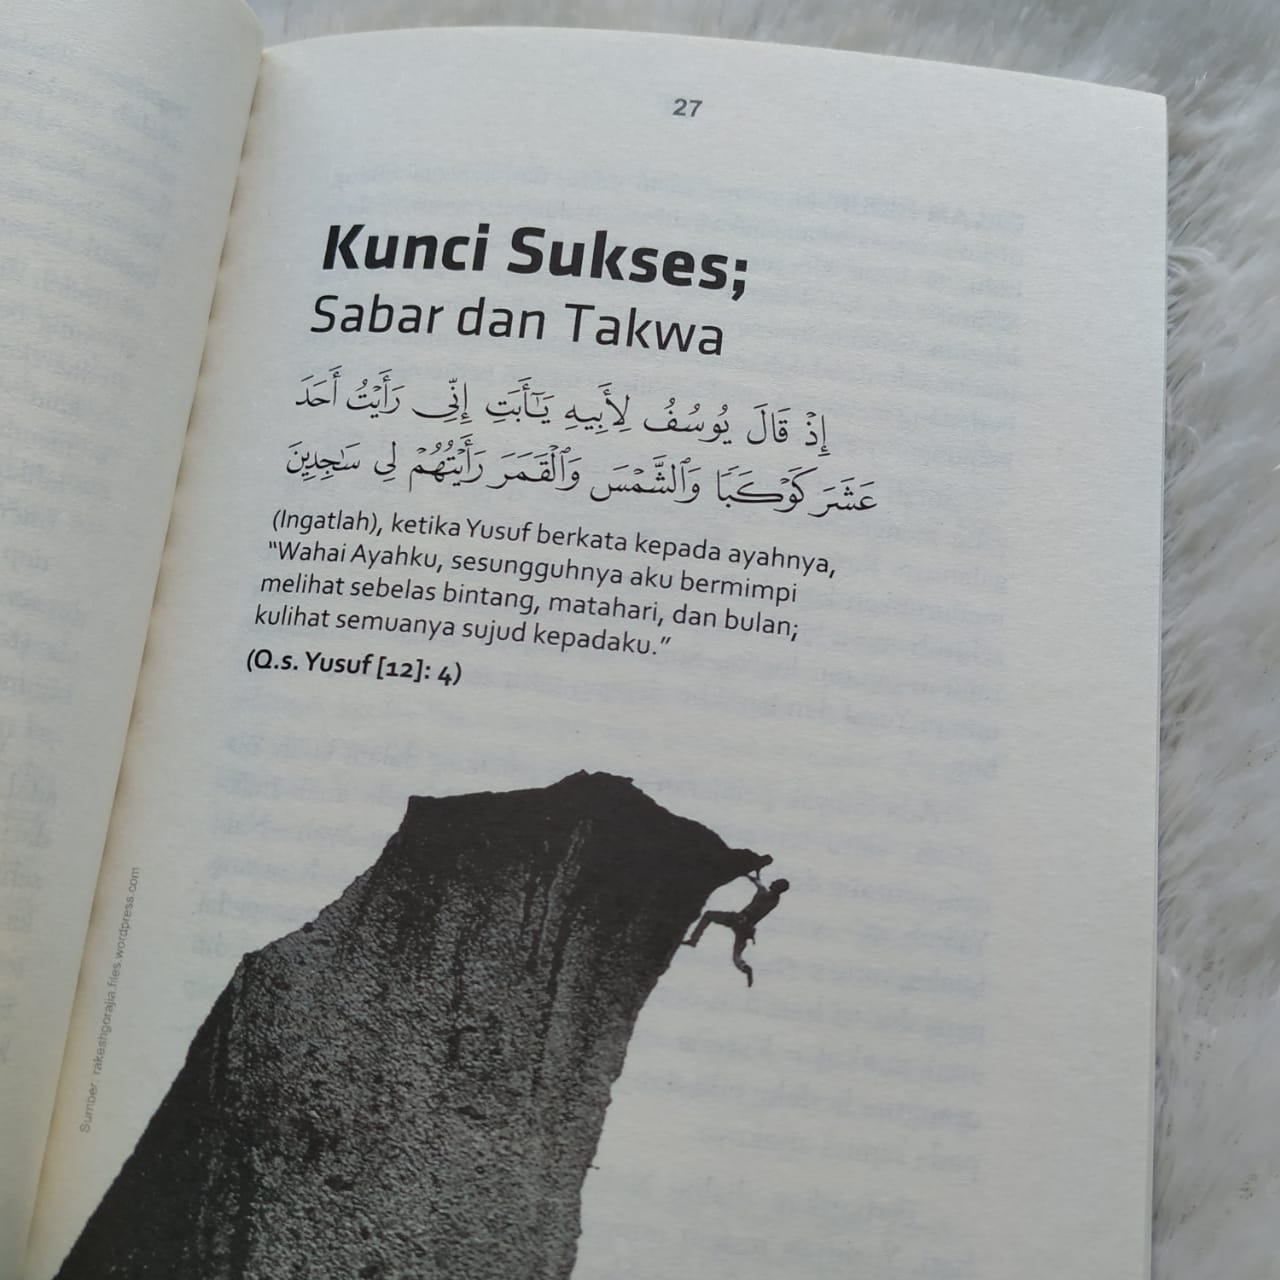 27
Kunci Sukses;
Sabar dan Takwa
إِذْ قَالَ يُوسُفُ لِأَبِيهِ يَـٰٓأَبَتِ إِنِّى رَأَيْتُ أَحَدَ
عَشَرَ كَوْكَبًا وَٱلشَّمْسَ وَٱلْقَمَرَ رَأَيْتُهُمْ لِى سَـٰجِدِينَ
(Ingatlah), ketika Yusuf berkata kepada ayahnya,
“Wahai Ayahku, sesungguhnya aku bermimpi
melihat sebelas bintang, matahari, dan bulan;
kulihat semuanya sujud kepadaku.”
(Q.s. Yusuf [12]: 4)
Sumber: rakeshgorajia.files.wordpress.com